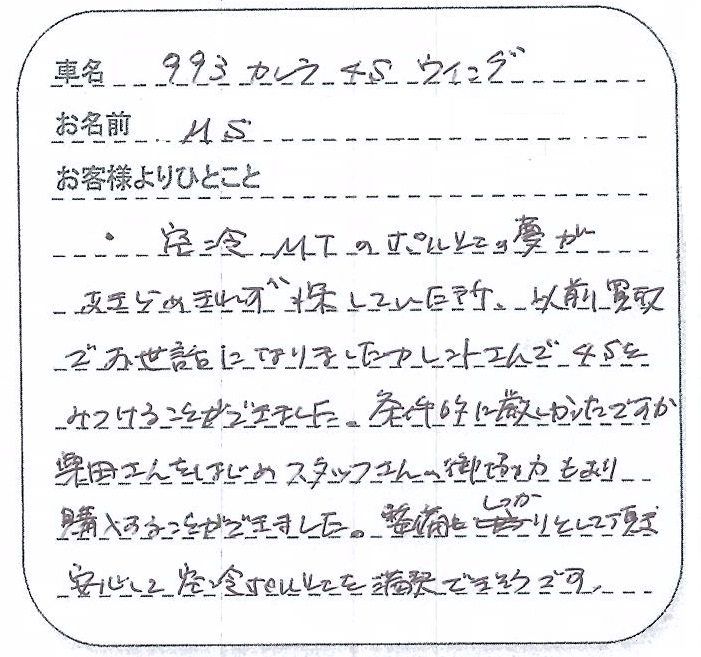 車名 993 カレラ 4S ウイング
お名前 MS
お客様よりひとこと
・空冷MTのポルシェの夢が
あきらめきれず探していた所、以前買取
でお世話になりましたカレントさんで4Sを
みつけることができました。条件的に厳しかったですが
柴田さんをはじめスタッフさんの御協力もあり
購入することができました。整備もしっかりとして頂き
安心して空冷ポルシェを満喫できそうです。